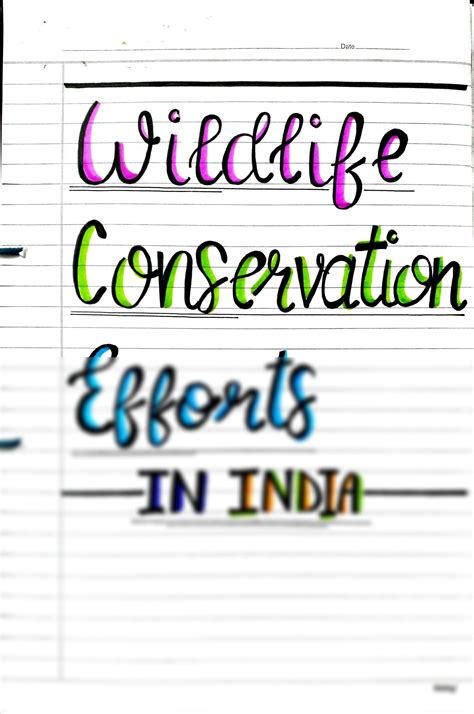 Date
Wildlife
Conservation
Efforts
IN INDIA